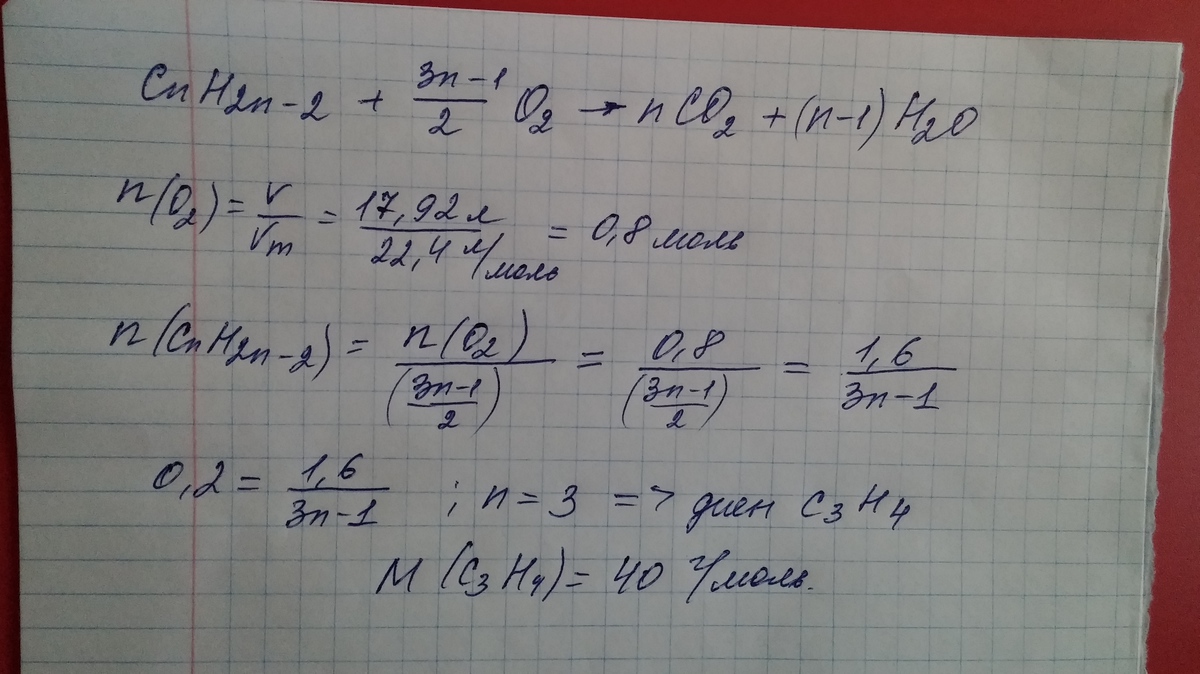 CnH2n-2 + 3n-1/2 O2 → nCO2 + (n-1)H2O
n(O2) = V/Vm = 17,92 л/22,4 л/моль = 0,8 моль
n(CnH2n-2) = n(O2)/(3n-1/2) = 0,8/(3n-1/2) = 1,6/3n-1
0,2 = 1,6/3n-1 ; n = 3 => диен C3H4
M(C3H4) = 40 г/моль.